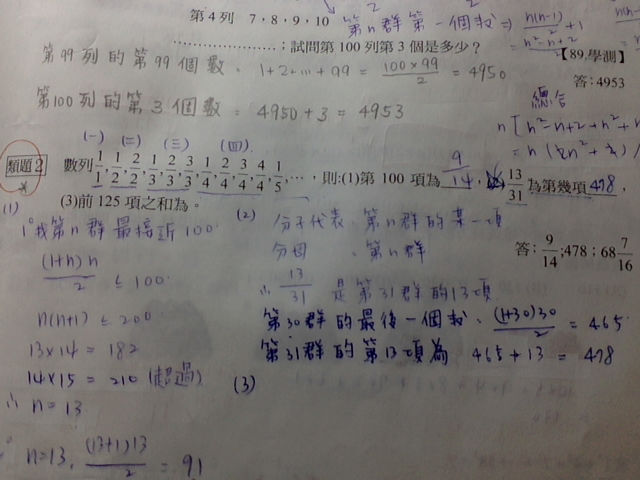 第4列 7、8、9、10 第n群第一個數⇒ n(n-1)/2 +1
= n²-n+2/2
……………………；試問第100列第3個是多少？
【89.學測】
答：4953
第99列的第99個數、1+2+…+99 = 100×99/2 = 4950
第100列的第3個數 = 4950+3 = 4953
總合
n[n²-n+2+n²+n
(一) (二) (三) (四)
類題2 數列 1/1, 1/2, 2/2, 1/3, 2/3, 3/3, 1/4, 2/4, 3/4, 4/4, 1/5, …，則：(1)第100項為 9/14 , 13/31 為第幾項 478，
(3)前125項之和為。
答：9/14；478；68 7/16
(1)
1°找第n群最接近100
(1+n)n/2 ≤ 100
n(n+1) ≤ 200
13×14 = 182
14×15 = 210 (超過)
∴ n = 13
n=13, (13+1)13/2 = 91
(2) 分子代表、第n群的某一項
分母、第n群
∴ 13/31 是第31群的13項
第30群的最後一個數、(1+30)30/2 = 465
第31群的第13項為 465+13 = 478
(3)